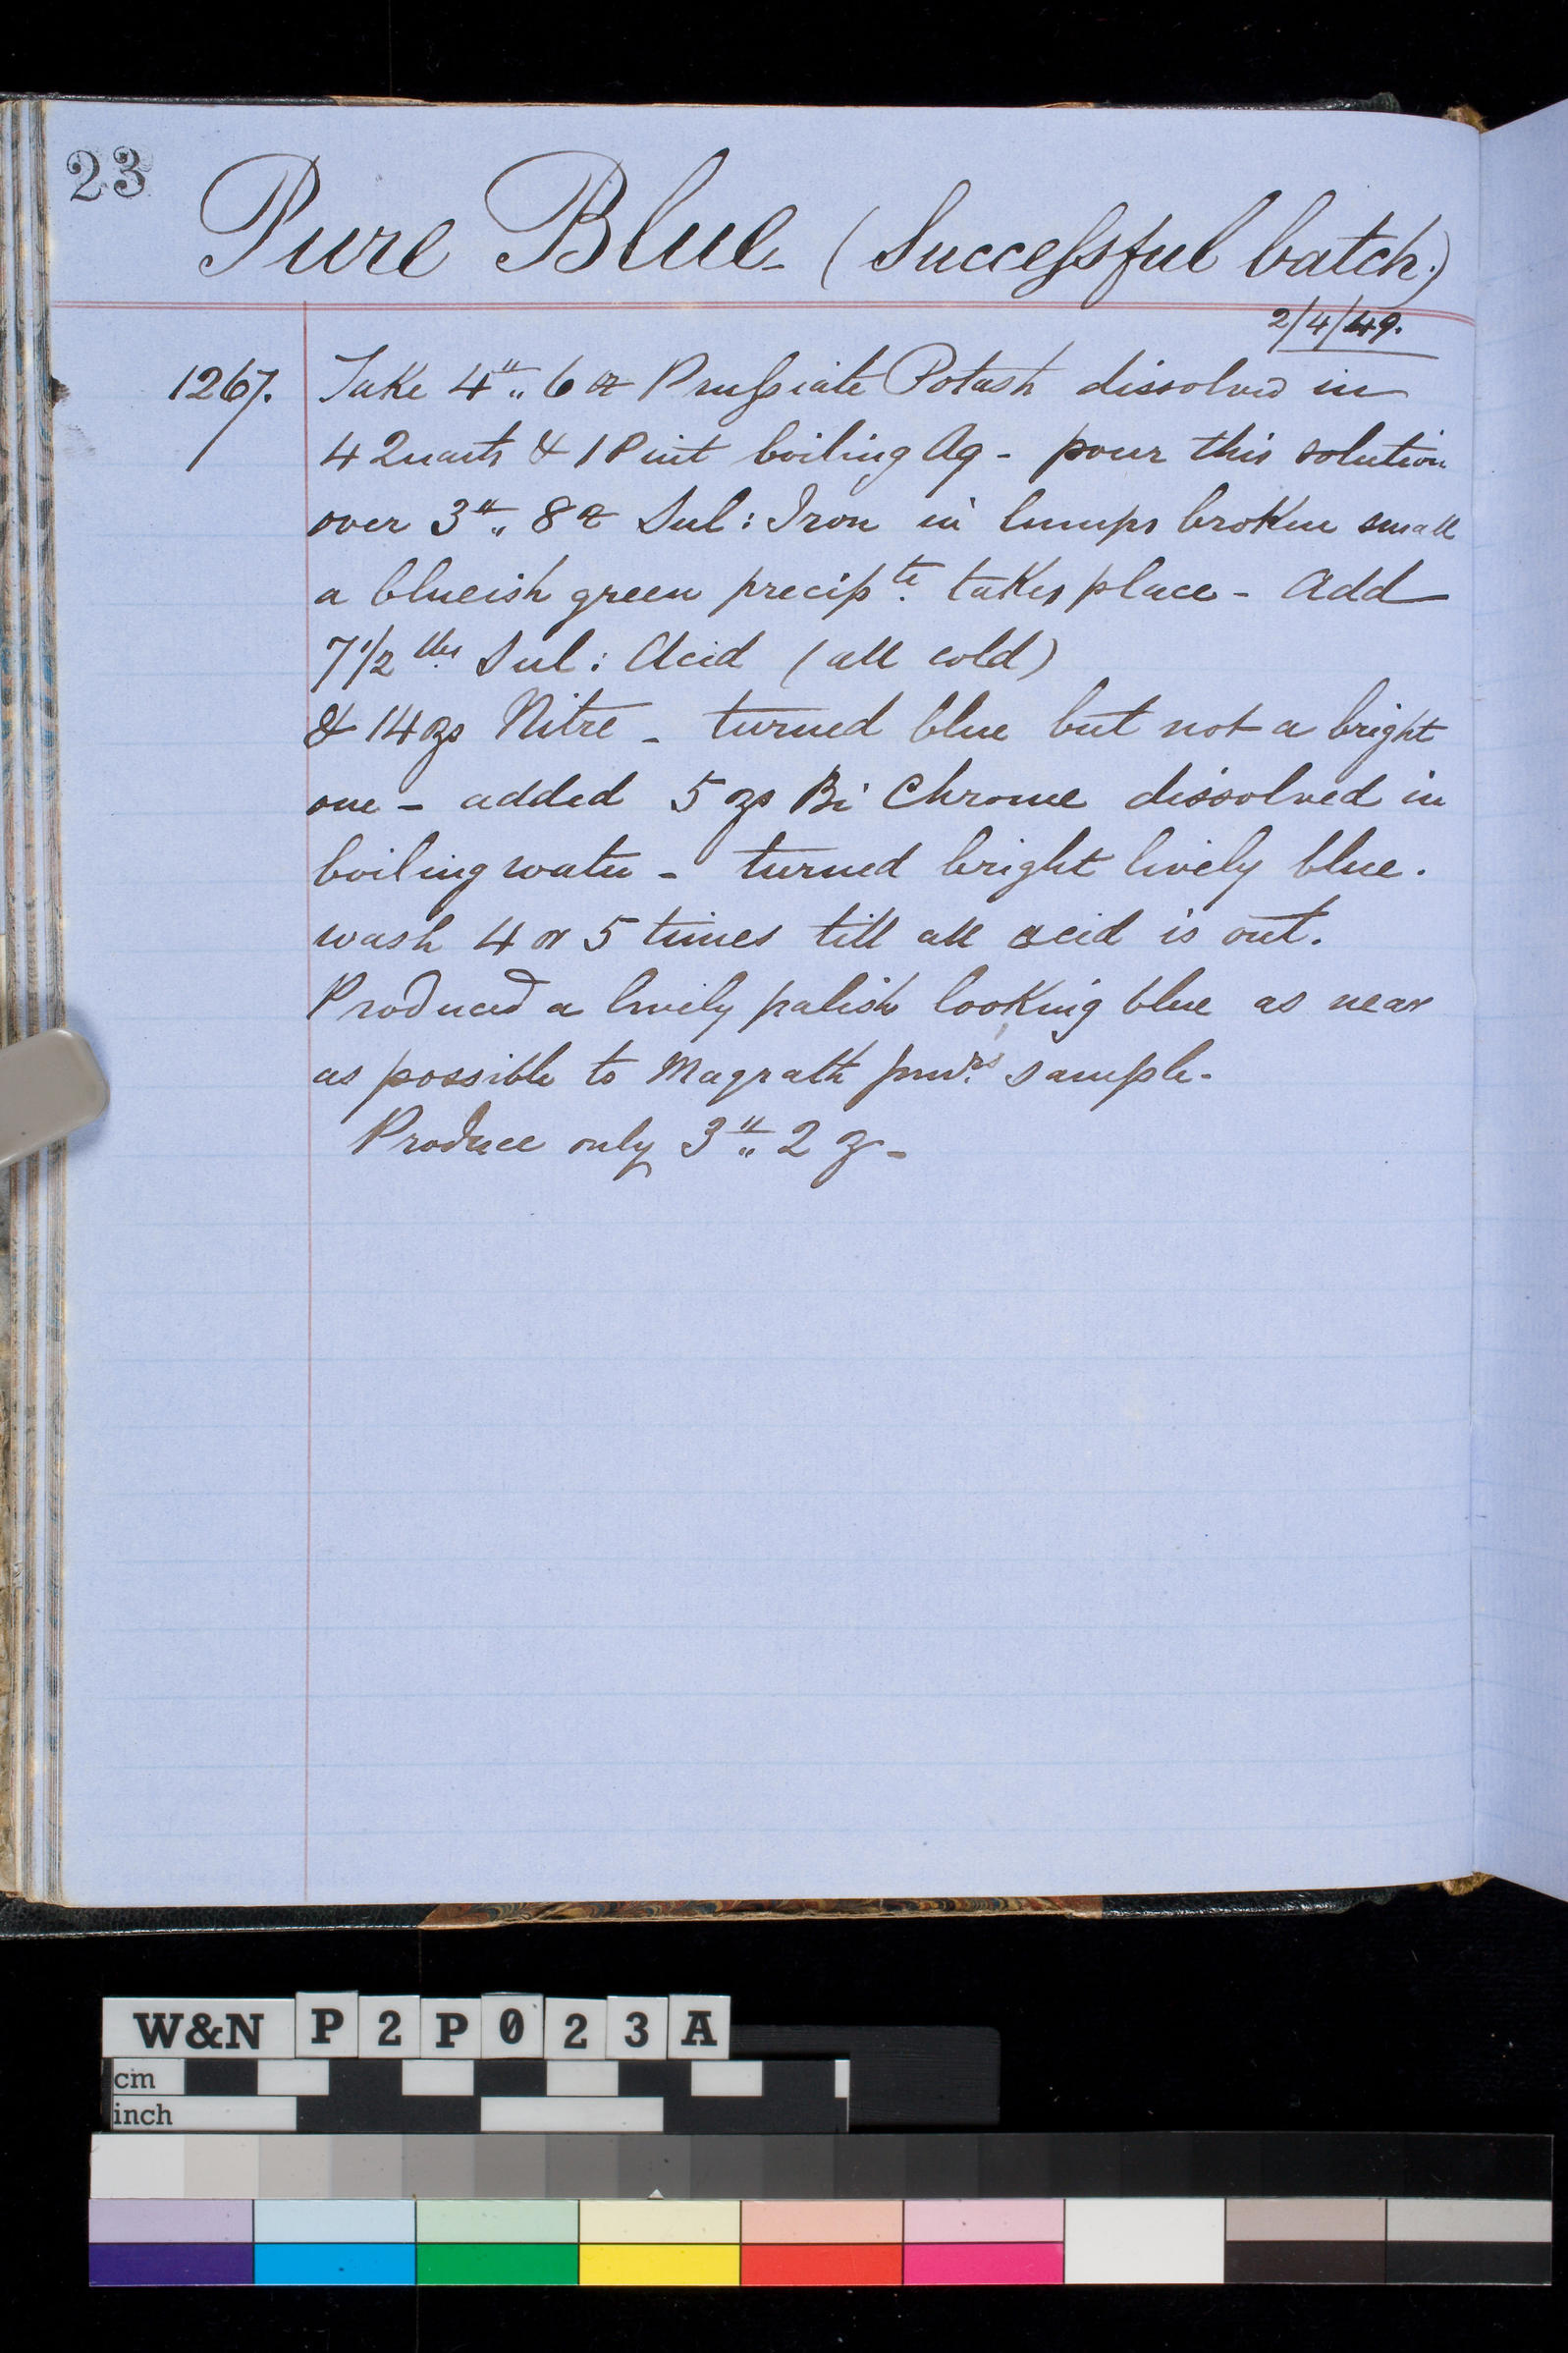 23
Pure Blue - (Successful batch.)
2/4/49.
1267. Take 4lb.. 6oz Prussiate Potash dissolved in
4 Quarts & 1 Pint boiling Aq - pour this solution
over 3lb.. 8oz Sul: Iron in lumps broken small
a blueish green precipte. takes place - Add
7 1/2 lbs Sul: Acid (all cold)
& 14 ozs Nitre - turned blue but not a bright
one - added 5 ozs Bi Chrome dissolved in
boiling water - turned bright lively blue.
wash 4 or 5 times till all acid is out.
Produced a lively palish looking blue as near
as possible to Magrath sample.
Produce only 3lb.. 2 oz -
W&N P2P023A
cm
inch